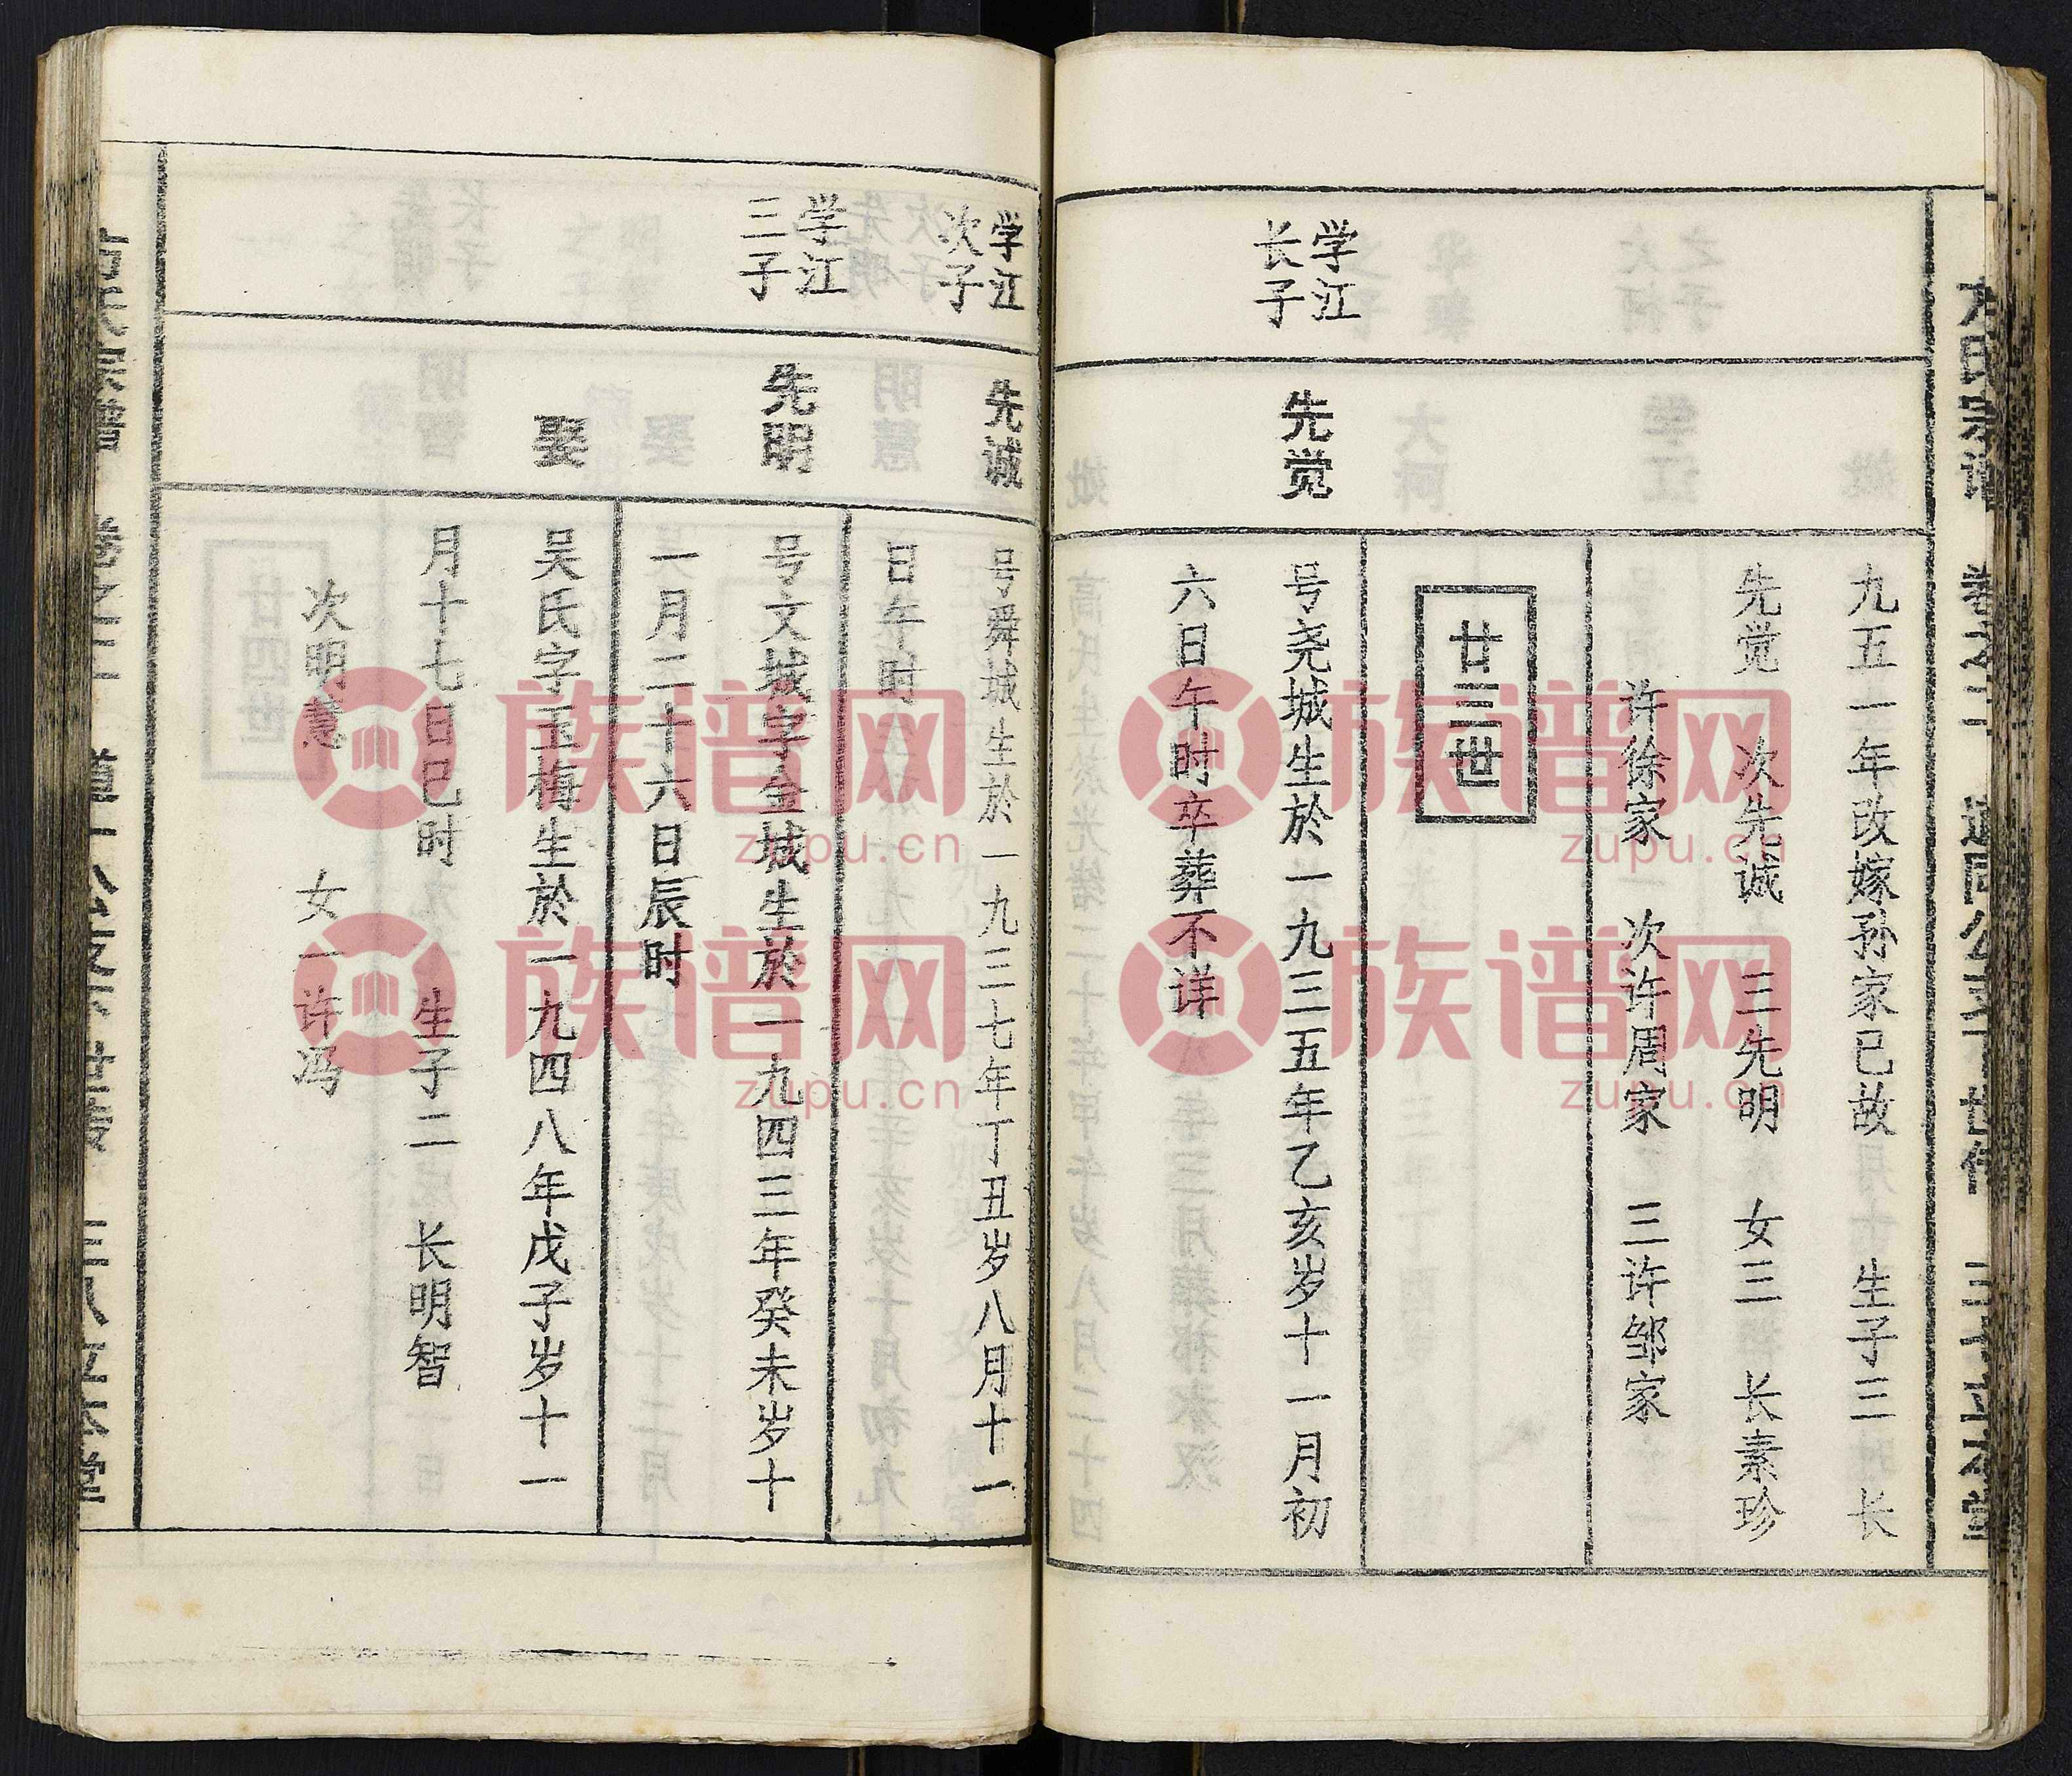 九五一年改嫁孙家已故 生子三 长
先觉 次先诚 三先明 女三 长素珍
许徐家 次许周家 三许邹家
廿三世
学江
长子
先觉
号尧城生於一九三五年乙亥岁十一月初
六日午时卒葬不详
学江
次子
先诚
号舜城生於一九三七年丁丑岁八月十一
日午时
学江
三子
先明
号文城字金城生於一九四三年癸未岁十
一月二十六日辰时
娶
吴氏字玉梅生於一九四八年戊子岁十一
月十七日巳时 生子二 长明智
次明慧 女一许冯
族谱网
zupu.cn
族谱网
zupu.cn
族谱网
zupu.cn
族谱网
zupu.cn